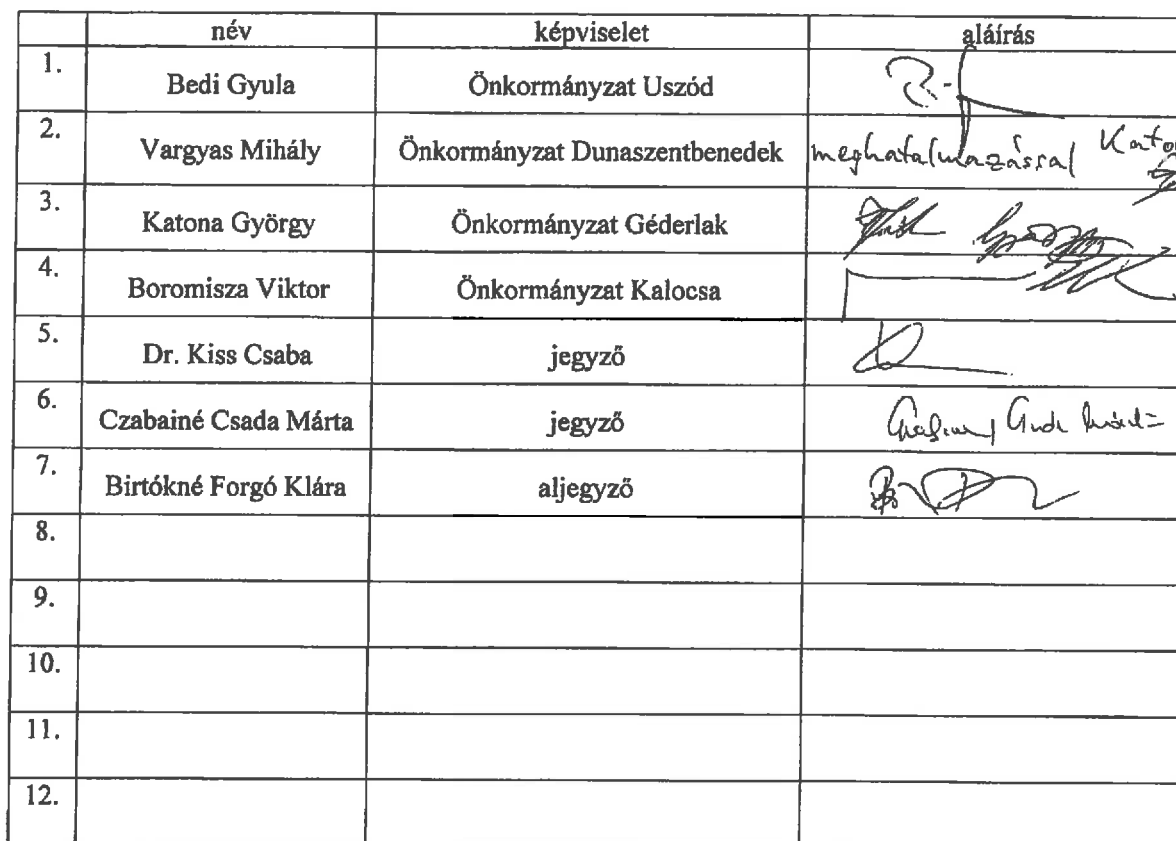 név képviselet aláírás
1. Bedi Gyula Önkormányzat Uszód
2. Vargyas Mihály Önkormányzat Dunaszentbenedek meghatalmazással
3. Katona György Önkormányzat Géderlak
4. Boromisza Viktor Önkormányzat Kalocsa
5. Dr. Kiss Csaba jegyző
6. Czabainé Csada Márta jegyző
7. Birtókné Forgó Klára aljegyző
8.
9.
10.
11.
12.